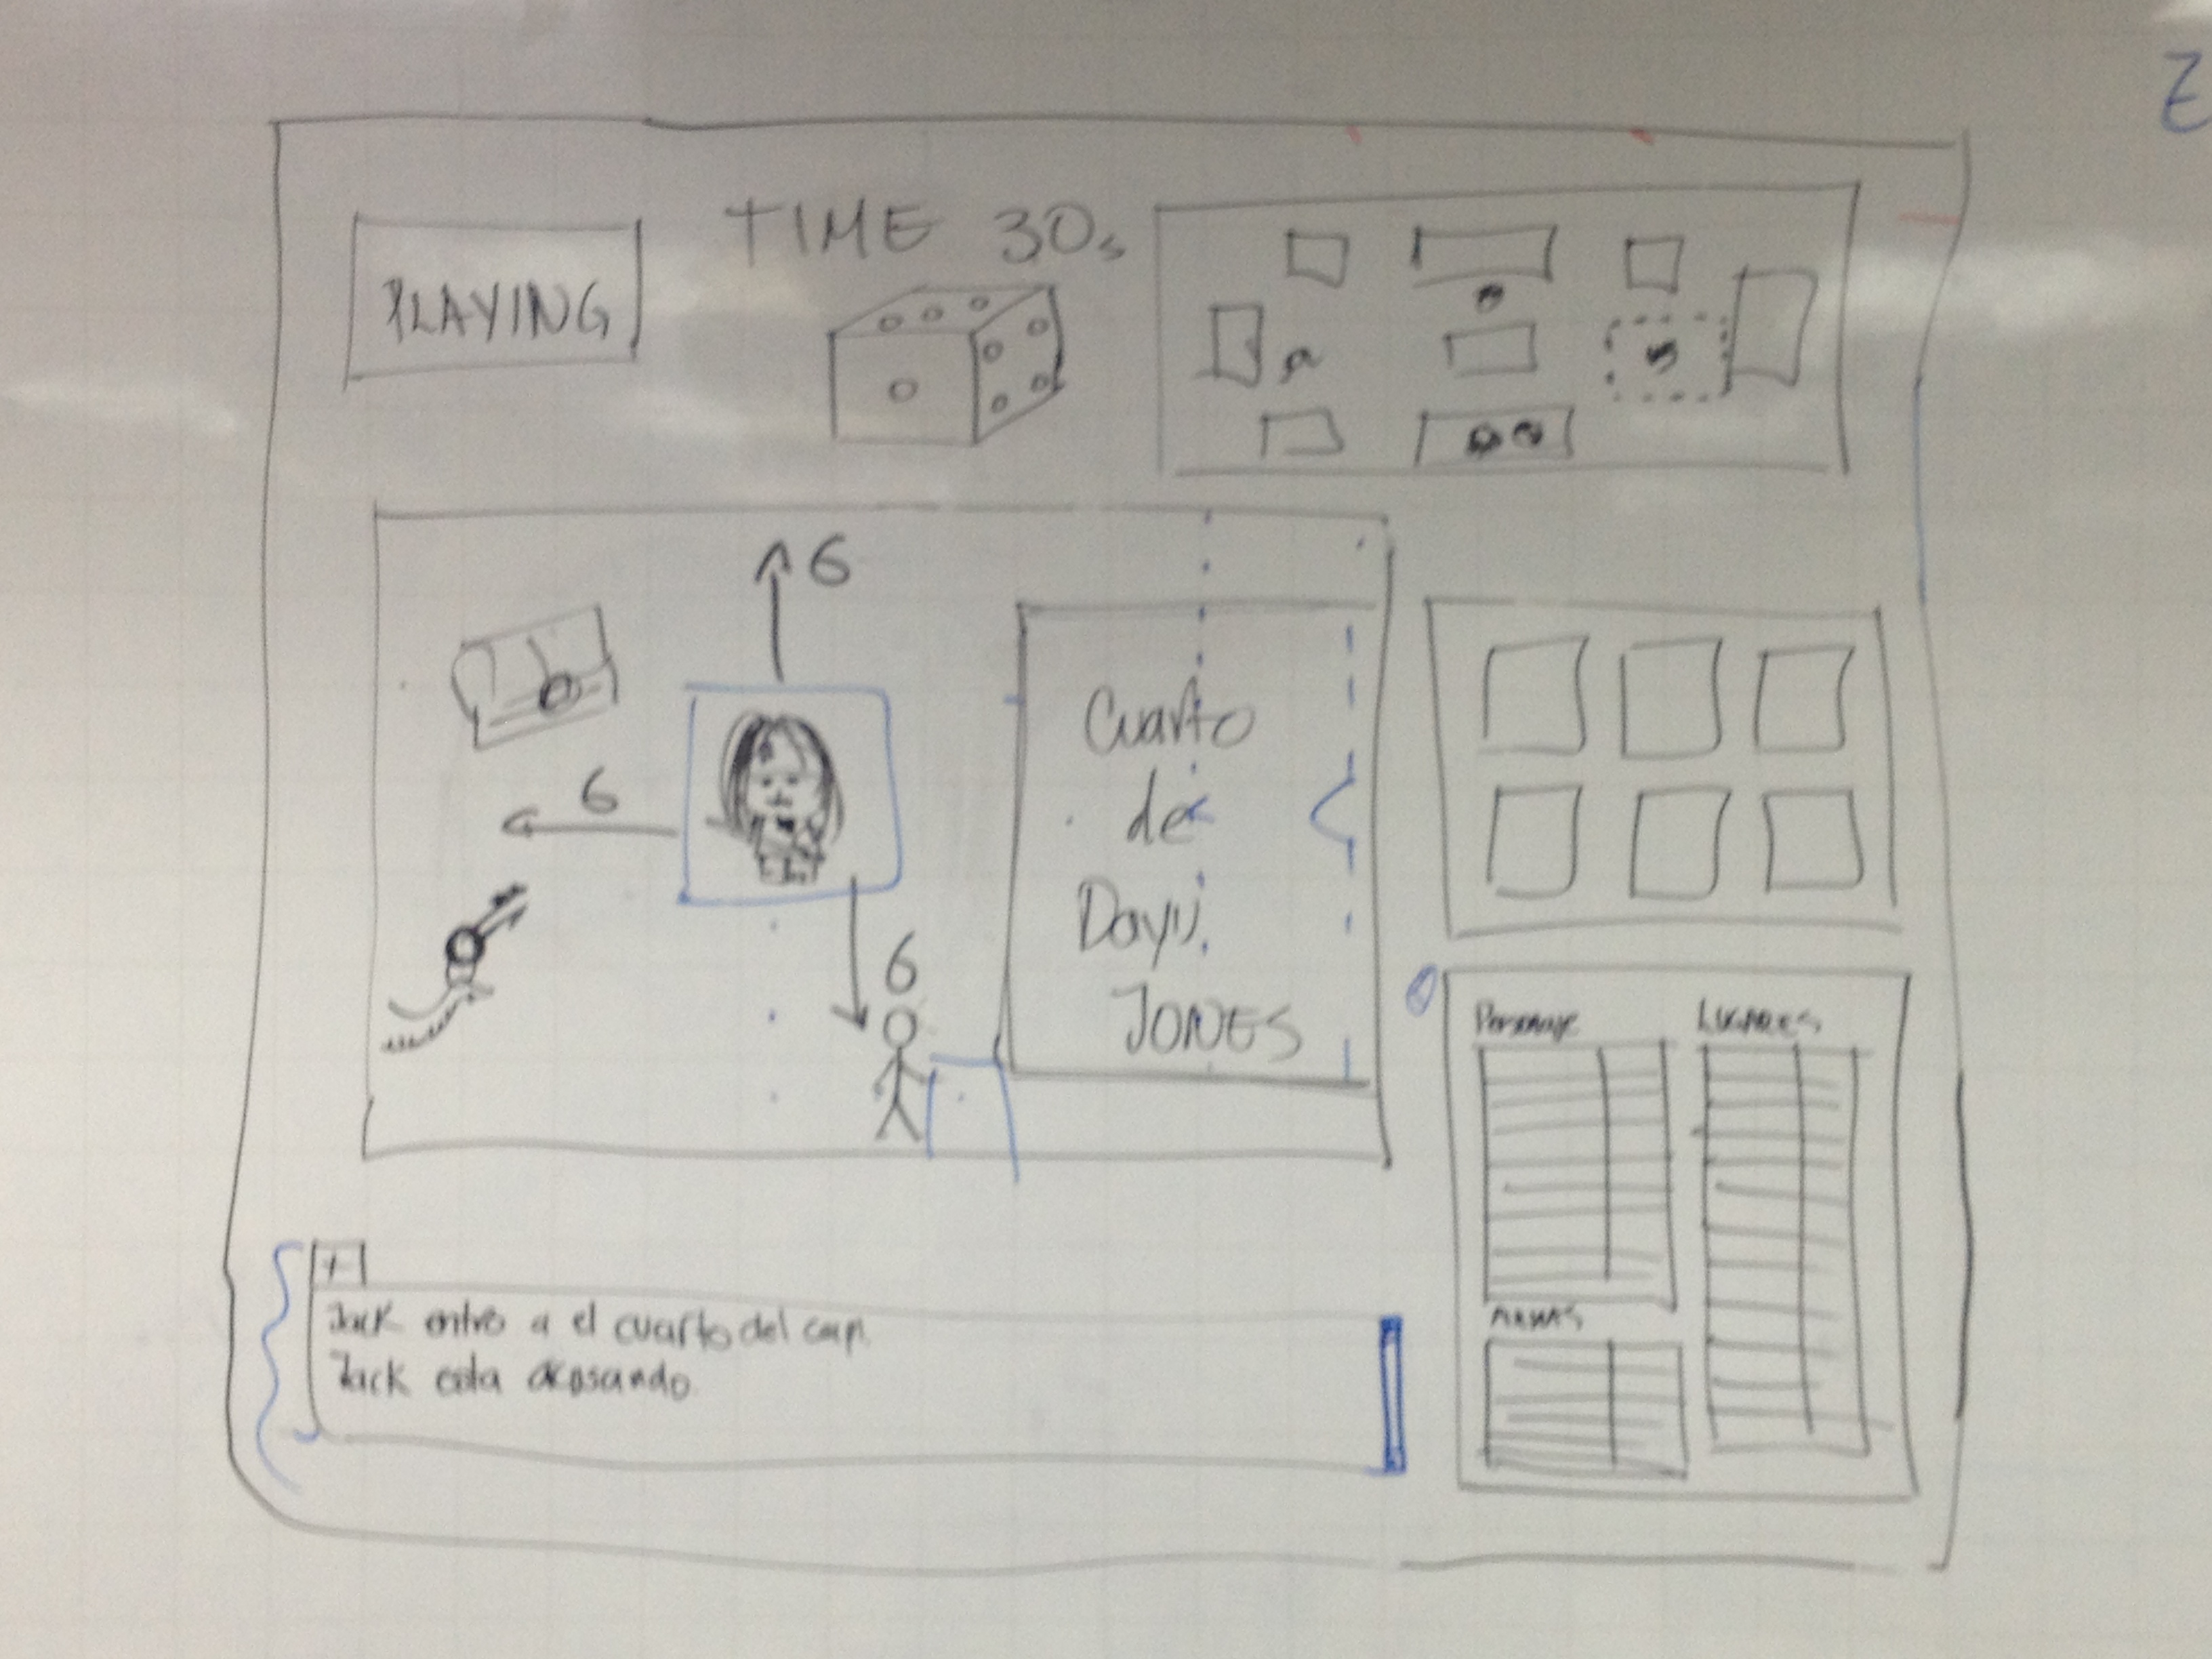 TIME 30s
PLAYING
6
6
6
Cuarto
de
Davy
JONES
Personaje
LUGARES
ARMAS
+
Jack entro a el cuarto del cap.
Jack esta acosando